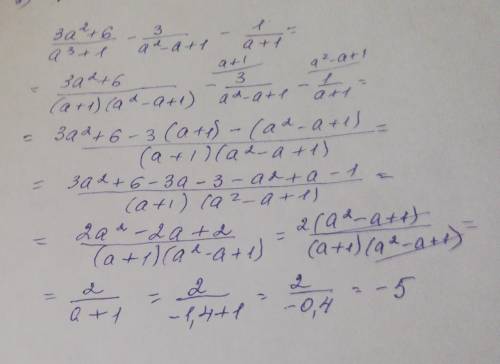 (3a²+6)/(a³+1) - 3/(a²-a+1) - 1/(a+1) =
= (3a²+6)/((a+1)(a²-a+1)) - ᵃ⁺¹⁄ 3/(a²-a+1) - ᵃ²⁻ᵃ⁺¹⁄ 1/(a+1) =
= (3a²+6-3(a+1)-(a²-a+1))/((a+1)(a²-a+1)) =
= (3a²+6-3a-3-a²+a-1)/((a+1)(a²-a+1)) =
= (2a²-2a+2)/((a+1)(a²-a+1)) = 2(a²-a+1)/((a+1)(a²-a+1)) =
= 2/(a+1) = 2/(-1,4+1) = 2/(-0,4) = -5